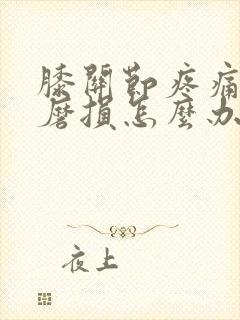 膝關節疼痛
磨損怎麼办
夜上